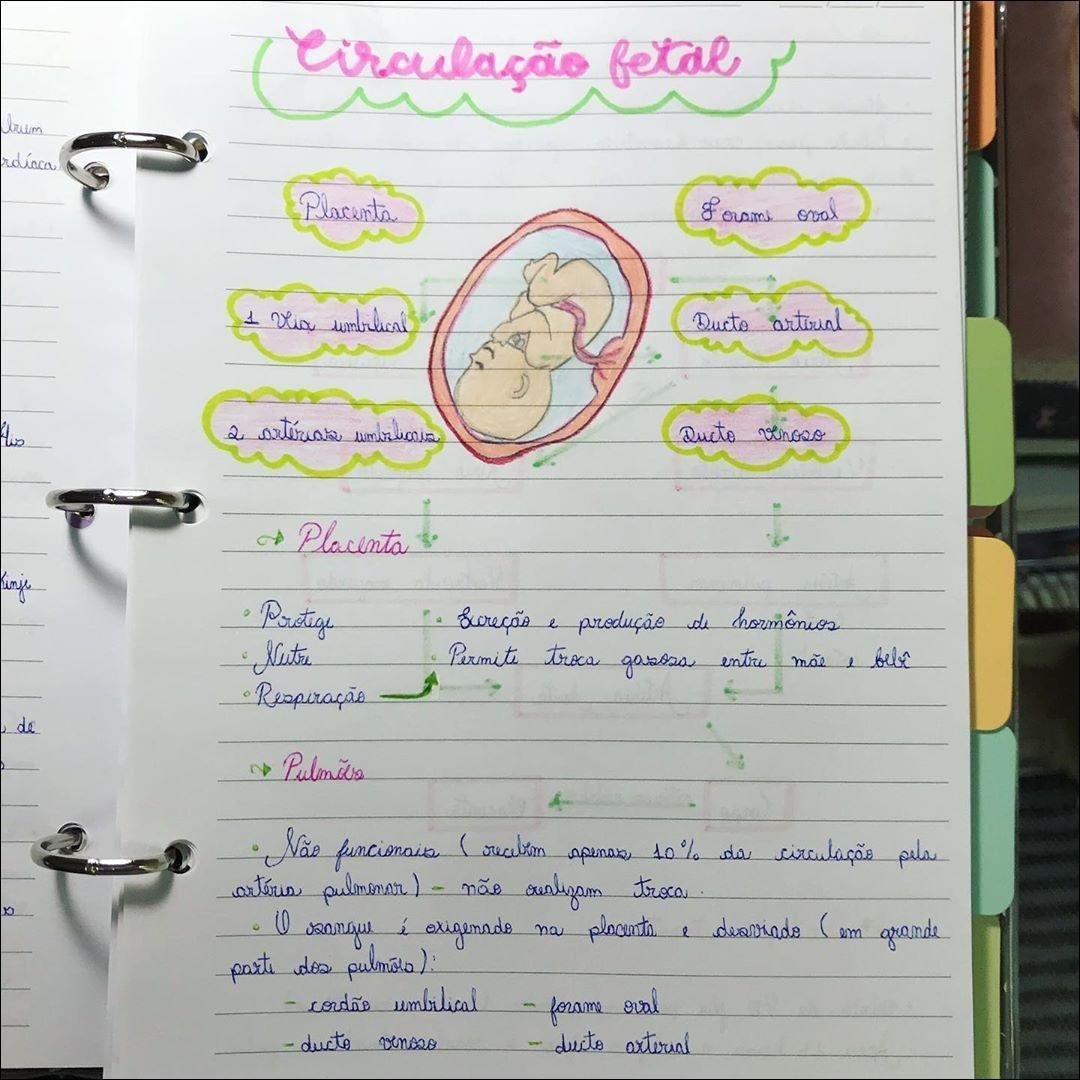 Circulação fetal
Placenta
Forame oval
1 Veia umbilical
Ducto arterial
2 artérias umbilicais
Ducto venoso
Placenta
• Protege
• Secreção e produção de hormônios
• Nutre
• Permite troca gasosa entre mãe e bebê
• Respiração
Pulmões
• Não funcionais (recebem apenas 10% da circulação pela
artéria pulmonar) - não realizam troca.
• O sangue é oxigenado na placenta e desviado (em grande
parte dos pulmões):
- cordão umbilical - forame oval
- ducto venoso - ducto arterial
rdíaca
Kinje
de